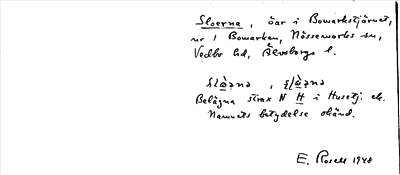 Sloerna, öar i Bowarkstjärnet,
nr 1 Bowarken, Nössemarks sn,
Vedbo hd, Älvsborgs l.
Belägna strax N H i Husetj. ek.
Namnets betydelse okänd.
E. Rosell 1948